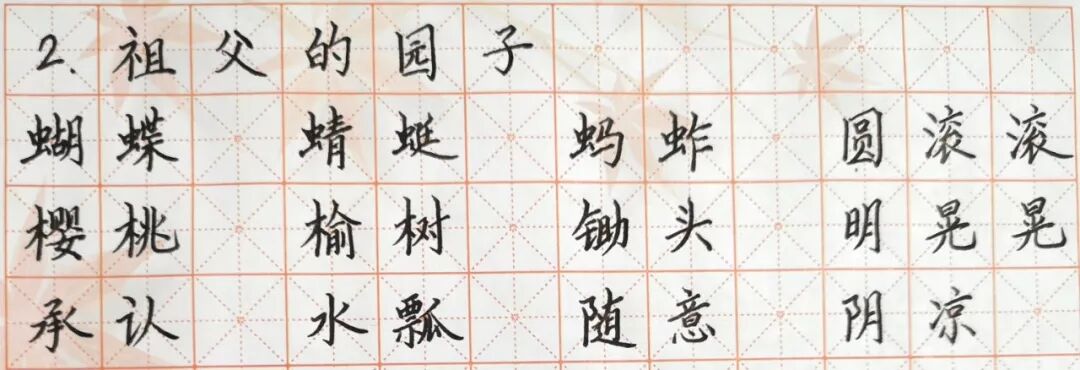 2.祖父的园子
蝴蝶 蜻蜓 蚂蚱 圆滚滚
樱桃 榆树 锄头 明晃晃
承认 水瓢 随意 阴凉